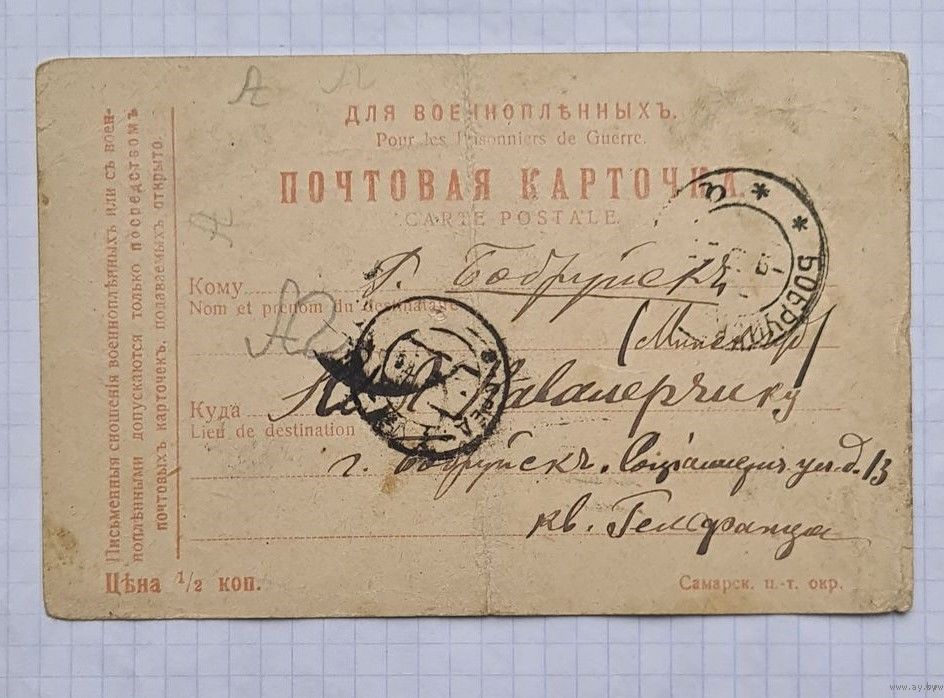 ДЛЯ ВОЕННОПЛѢННЫХЪ.
Pour les Prisonniers de Guerre.
ПОЧТОВАЯ КАРТОЧКА.
CARTE POSTALE.
Кому
г. Бобруйскъ
Nom et prénom du destinataire
Куда
Кавалерчику
Lieu de destination
г. Бобруйскъ. ул. д. 13
кв.
Цѣна 1/2 коп.
Самарск. п.-т. окр.
Письменныя сношенія военноплѣнныхъ или съ воен-
ноплѣнными допускаются только посредствомъ
почтовыхъ карточекъ, подаваемыхъ открыто.
* * БОБРУЙСК
www.ay.by